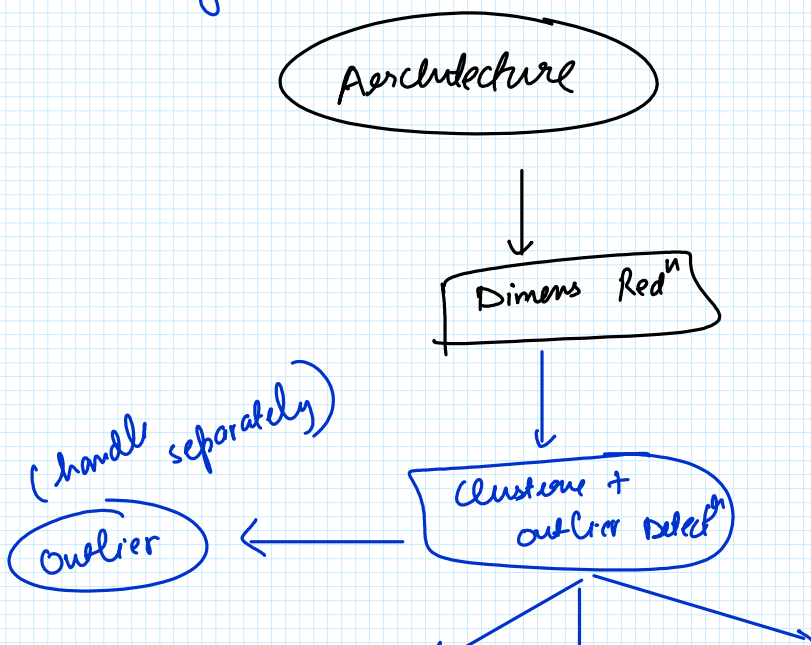 Aerchitecture
Dimens Redⁿ
(handle separately)
Clustering +
outlier Detectⁿ
Outlier